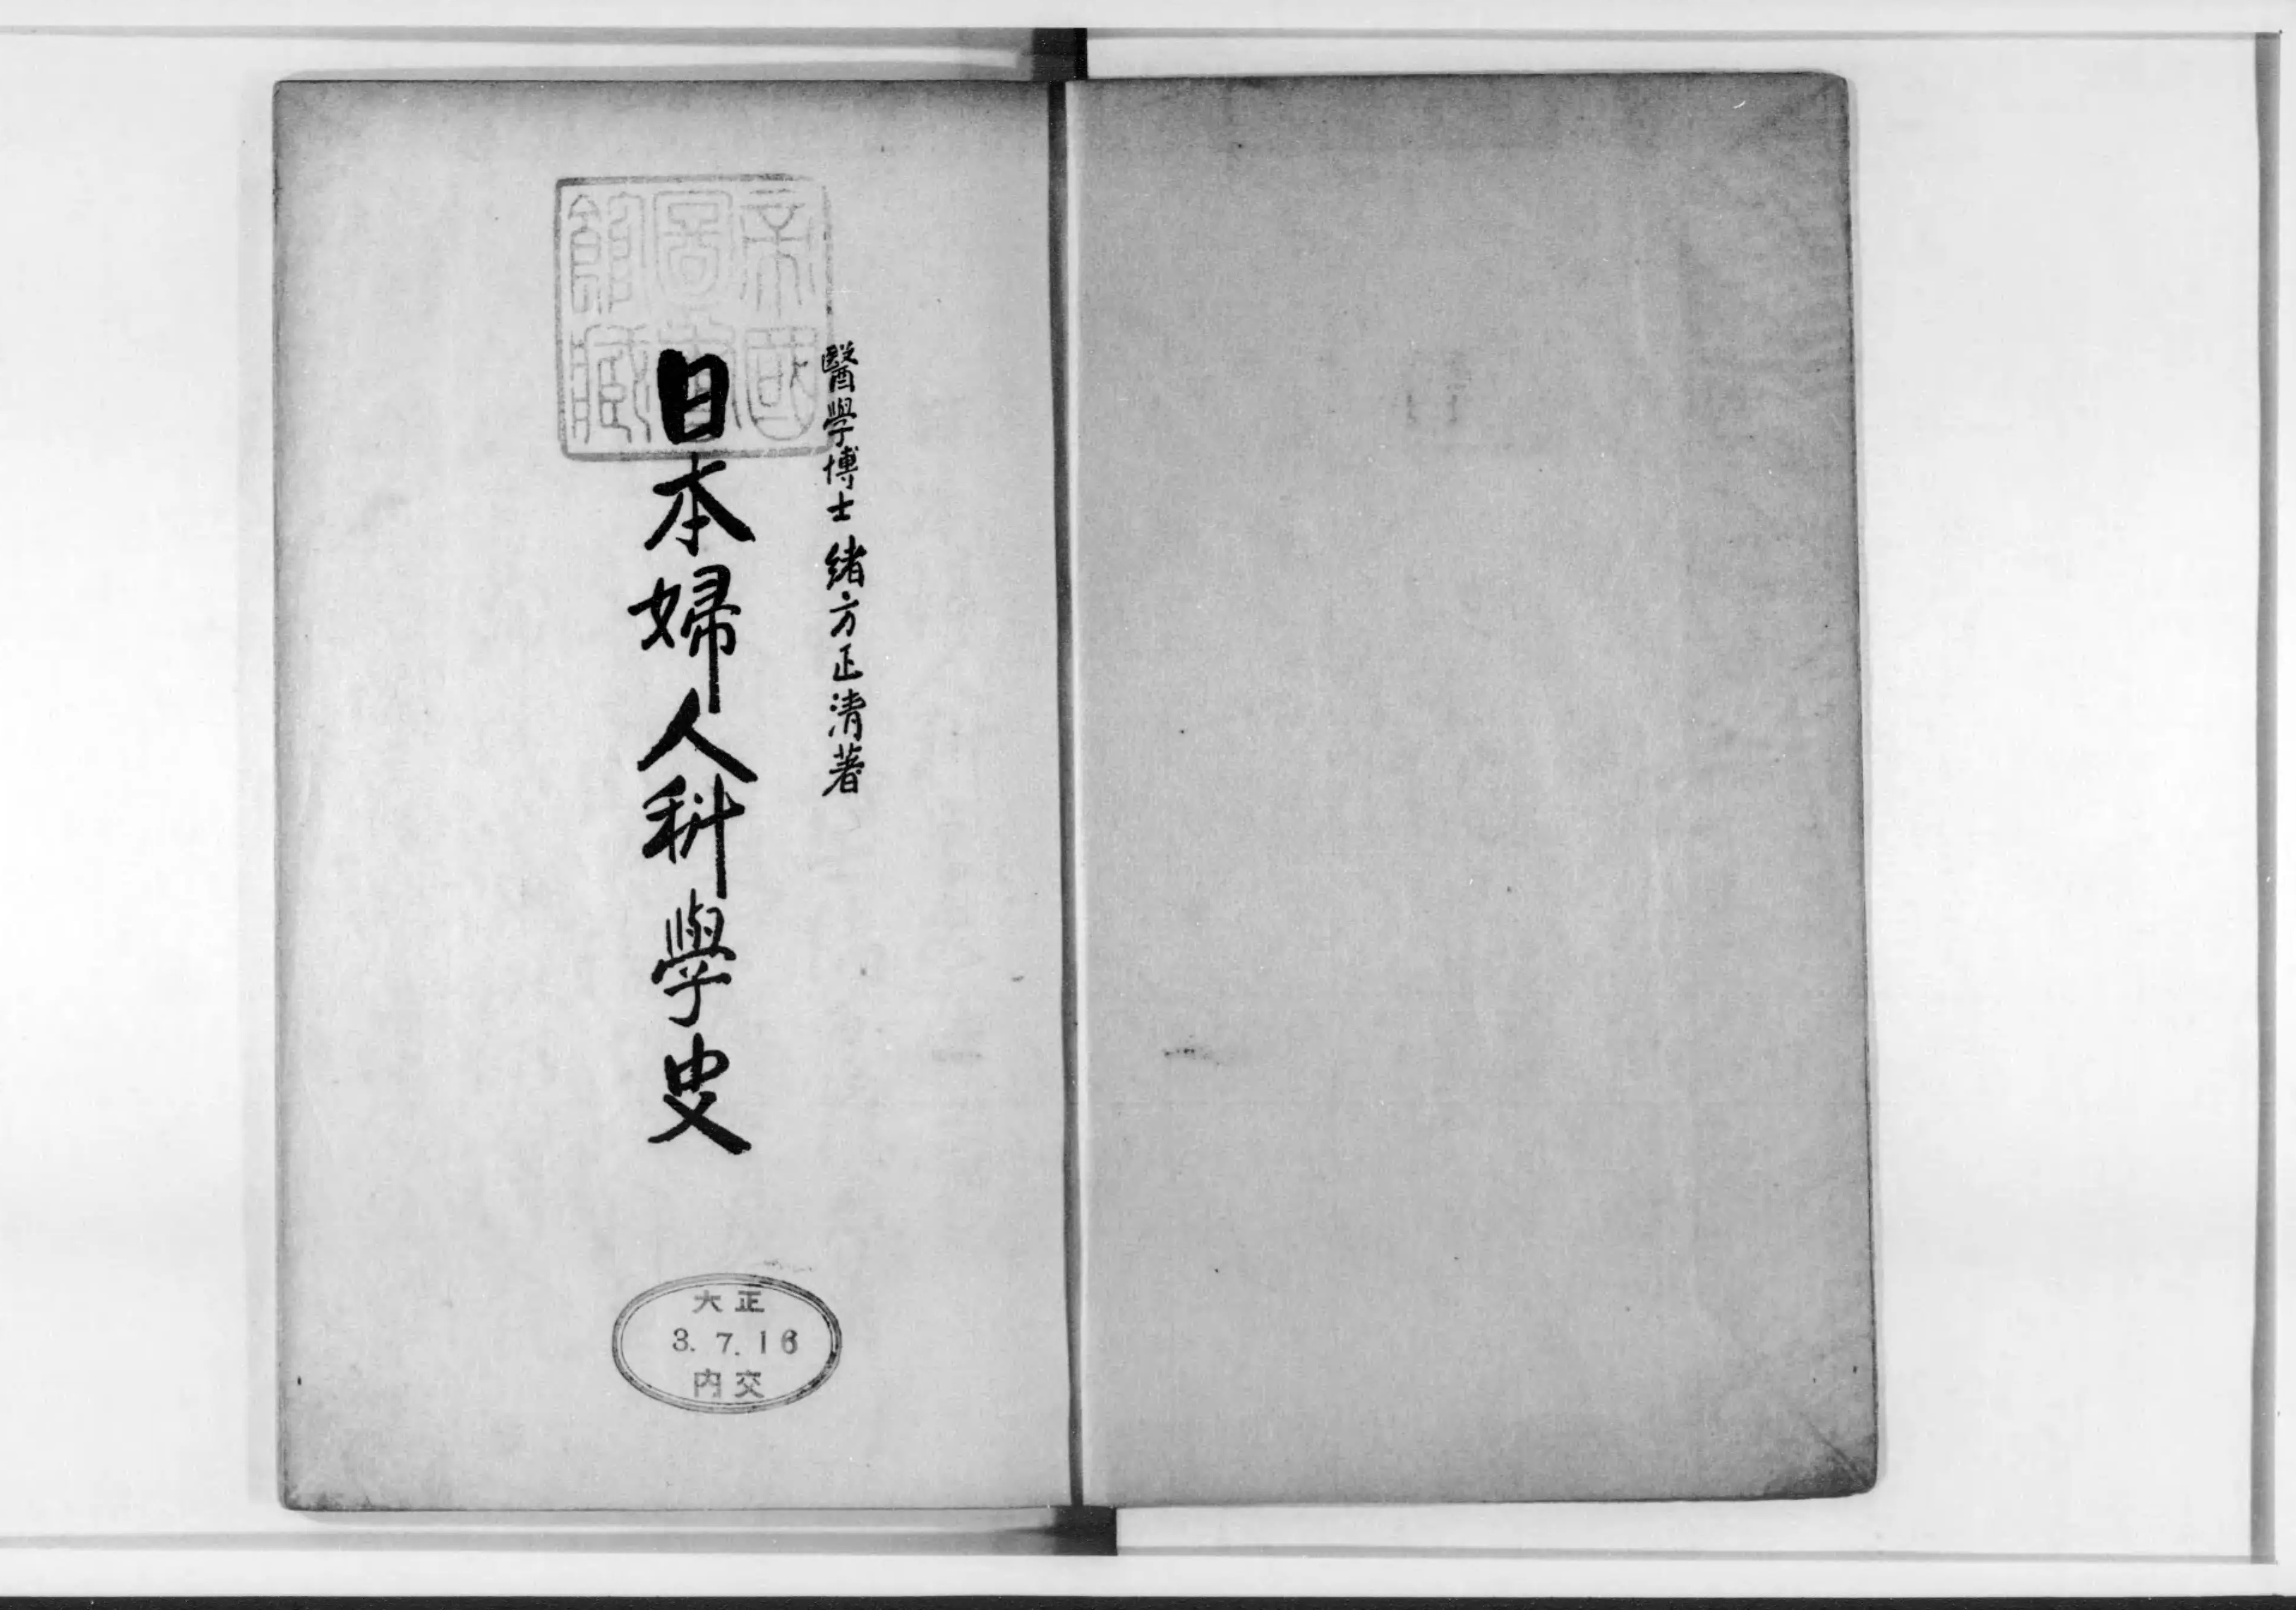 醫學博士 緒方正清著
日本婦人科學史
帝國
圖書
館藏
大正
3.7.16
内交